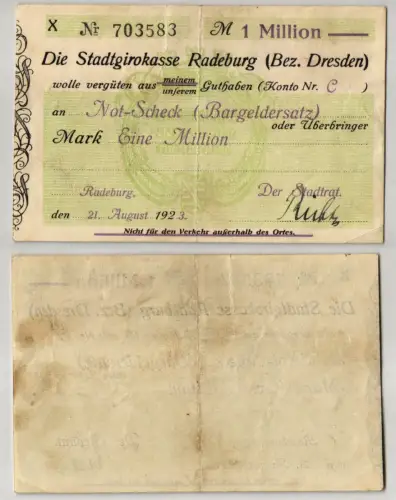 X № 703583 M 1 Million
Die Stadtgirokasse Radeburg (Bez. Dresden)
wolle vergüten aus meinem unserem Guthaben (Konto Nr. C )
an Not-Scheck (Bargeldersatz) oder Überbringer
Mark Eine Million
Radeburg, Der Stadtrat.
den 21. August 1923.
Nicht für den Verkehr außerhalb des Ortes.